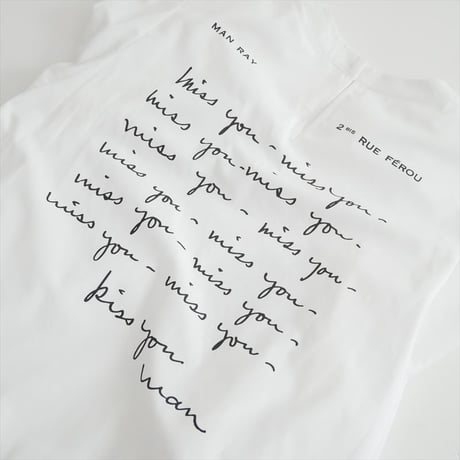 MAN RAY
2 BIS RUE FÉROU
miss you - miss you -
miss you - miss you -
miss you - miss you -
miss you - miss you -
miss you - miss you -
miss you - miss you -
kiss you
Man